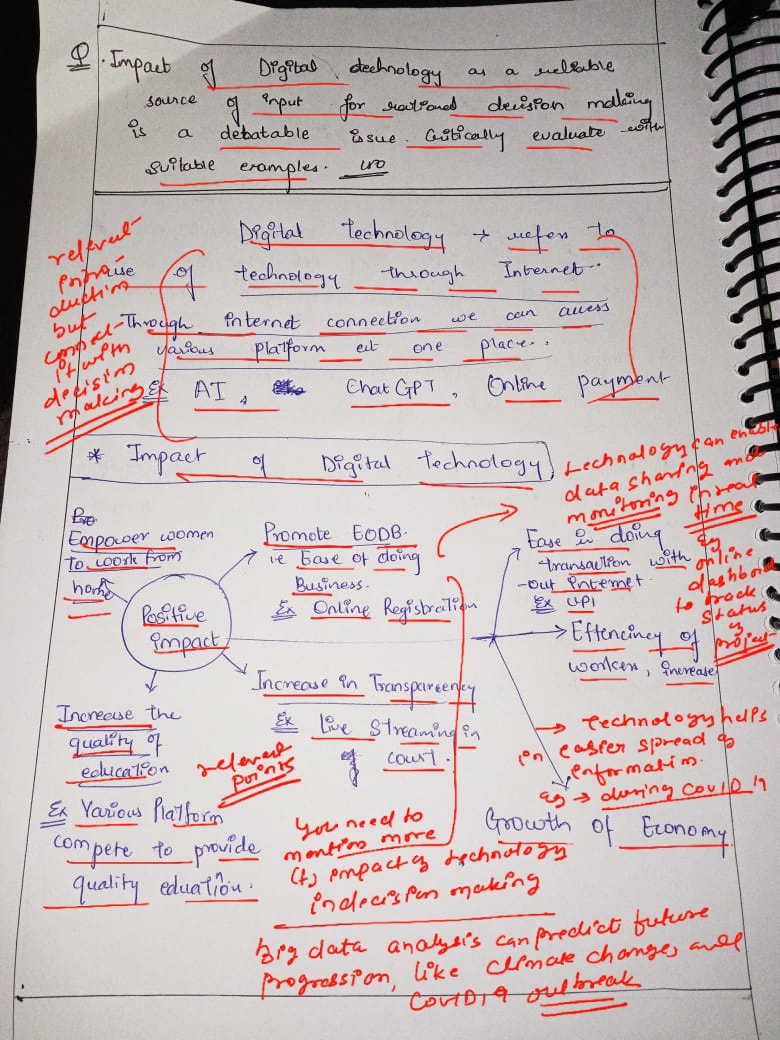 Q. Impact of Digital technology as a reliable
source of input for rational decision making
is a debatable issue. Critically evaluate with
suitable examples.
Digital technology → refers to
use of technology through Internet..
Through internet connection we can access
various platform at one place..
Ex AI, ChatGPT, Online payment
relevent
intro-
duction
but
connect
it with
decision
making
* Impact of Digital Technology
technology can enable
data sharing and
monitoring in real
time
Eg
online
dashboard
to track
status
of
project
Empower women
to work from
home
Promote EODB.
ie Ease of doing
Business.
Ex Online Registration
Ease in doing
transaction with
-out internet.
Ex UPI
Positive
impact
Effenciency of
workers, increase
Increase in Transpareency
Ex Live Streaming in
of court.
Increase the
quality of
education
Ex Various Platform
compete to provide
quality eduation.
relevent
points
→ technology helps
in easier spread of
information.
eg → during COVID 19
Growth of Economy
you need to
mention more
(+) impact of technology
in decision making
Big data analysis can predict future
progression, like climate changes, and
COVID19 outbreak